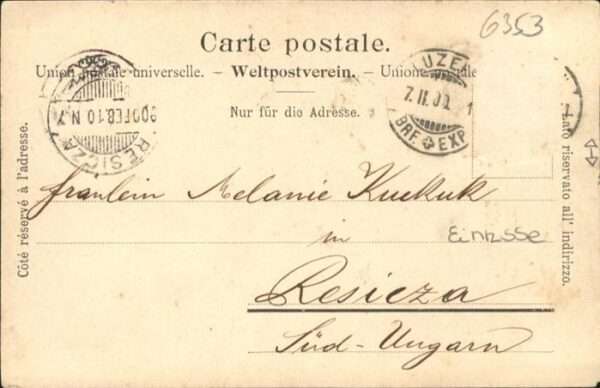 6353
Carte postale.
Union postale universelle. – Weltpostverein. – Unione postale
Nur für die Adresse.
LUZERN
7.II.00.
BRF. EXP.
RESICZA
900 FEB. 10 N. 7
Côté réservé à l'adresse.
Lato riservato all' indirizzo.
fraulein Melanie Kuckuk
in
Einrisse
Resicza
Süd-Ungarn